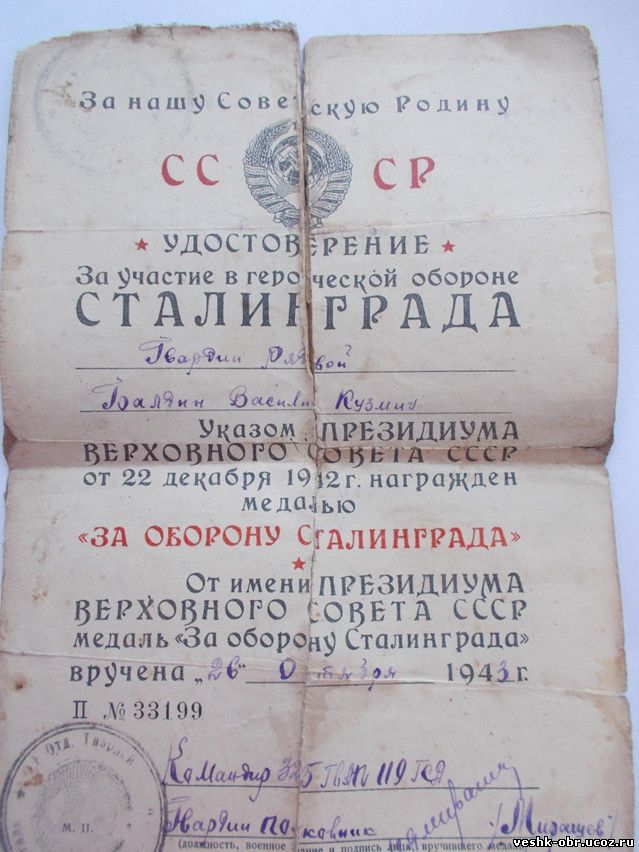 За нашу Советскую Родину
СССР
УДОСТОВЕРЕНИЕ
За участие в героической обороне
СТАЛИНГРАДА
Гвардии Рядовой
Балдин Васили Кузмич
Указом ПРЕЗИДИУМА
ВЕРХОВНОГО СОВЕТА СССР
от 22 декабря 1942 г. награжден
медалью
«ЗА ОБОРОНУ СТАЛИНГРАДА»
От имени ПРЕЗИДИУМА
ВЕРХОВНОГО СОВЕТА СССР
медаль «За оборону Сталинграда»
вручена „26" Октября 1943 г.
П № 33199
Отд. Гвардей
Командир 325 ГВАП 119 ГСД
М. П.
Гвардии полковник
(должность, военное звание и подпись лица, вручившего медаль
veshk-obr.ucoz.ru